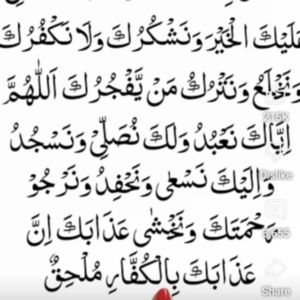 عَلَيْكَ الْخَيْرَ وَنَشْكُرُكَ وَلَا نَكْفُرُكَ
وَنَخْلَعُ وَنَتْرُكُ مَنْ يَّفْجُرُكَ اَللّٰهُمَّ
اِيَّاكَ نَعْبُدُ وَلَكَ نُصَلِّيْ وَنَسْجُدُ
وَاِلَيْكَ نَسْعٰى وَنَحْفِدُ وَنَرْجُوْ
رَحْمَتَكَ وَنَخْشٰى عَذَابَكَ اِنَّ
عَذَابَكَ بِالْكُفَّارِ مُلْحِقٌ
Dislike
Share